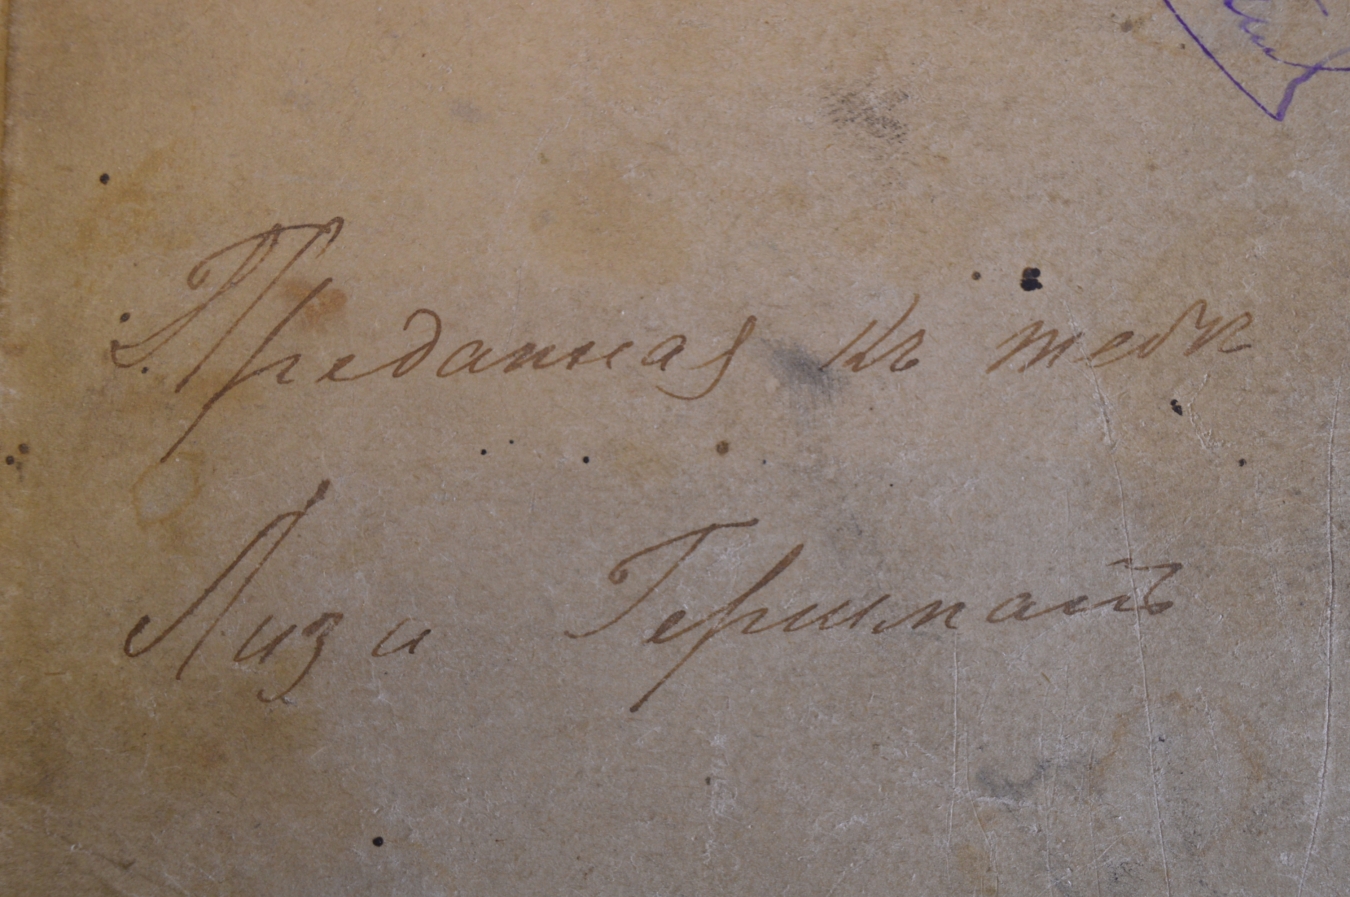 Преданная къ тебѣ
Лиза Гершманъ